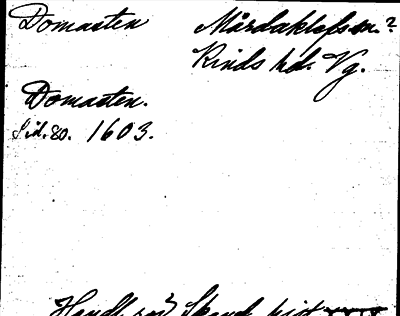 Domasten Mårdaklefs sn.?
Kinds hd. Vg.
Domasten.
Sid. 80. 1603.
Handl. rör Skand. hist